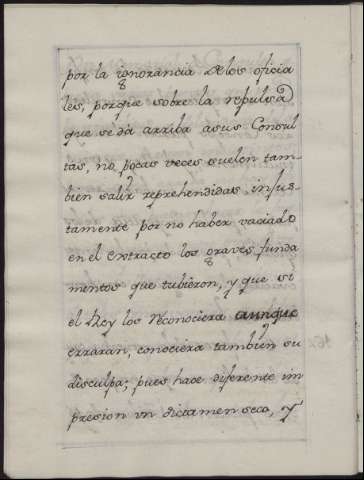 por la ignorancia de los oficia
les, porque sobre la repulsa
que se dà arriba asus Consul
tas, no pocas veces suelen tam-
bien salir reprehendidas injus-
tamente por no haber vaciado
en el extracto los graves funda
mentos que tubieron, y que si
el Rey los reconociera aunque
erraran, conociera tambien su
disculpa; pues hace diferente im
presion un dictamen seco, y